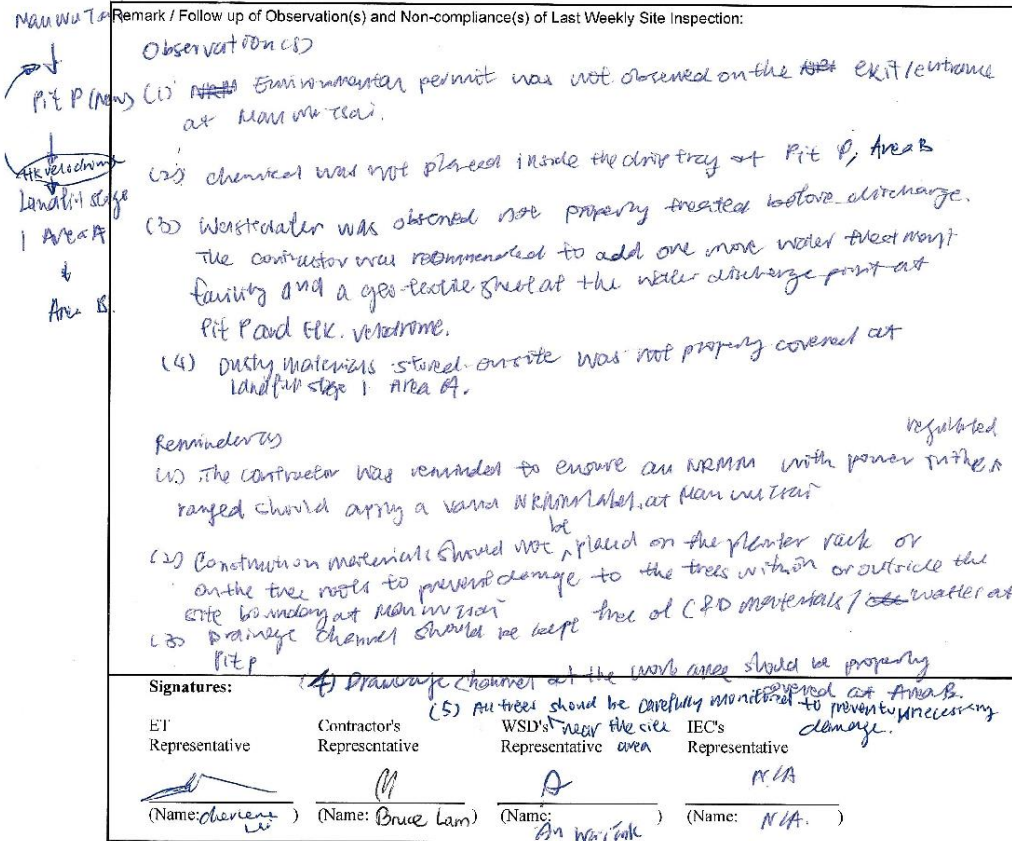 Man Wu
Pit P (New)
HK velodrome
Landfill stage
1 Area A
Area B.
Remark / Follow up of Observation(s) and Non-compliance(s) of Last Weekly Site Inspection:
Observation(s)
(1) Environmental permit was not observed on the exit/entrance
at Man Wu Tsai.
(2) chemical was not placed inside the drip tray at Pit P, Area B
(3) Wastewater was observed not properly treated before discharge.
The contractor was recommended to add one more water treatment
facility and a geo-textile sheet at the water discharge point at
Pit P and HK. velodrome.
(4) Dusty materials stored onsite was not properly covered at
Landfill stage 1 Area A.
Reminder(s)
(1) The contractor was reminded to ensure all NRMM with power in the regulated
ranged should a valid NRMM label. at Man Wu Tsai
(2) Construction materials should not be placed on the planter rack or
on the tree roots to prevent damage to the trees within or outside the
site boundary at Man Wu Tsai
(3) Drainage channel should be kept free of C&D materials / at
Pit P
(4) Drainage channel at the work area should be properly
covered at Area B.
(5) All trees near the site area should be carefully monitored to prevent unnecessary
damage.
Signatures:
ET Representative
Contractor's Representative
WSD's Representative
IEC's Representative
N/A
(Name: )
(Name: Bruce Lam)
(Name: )
(Name: N/A. )